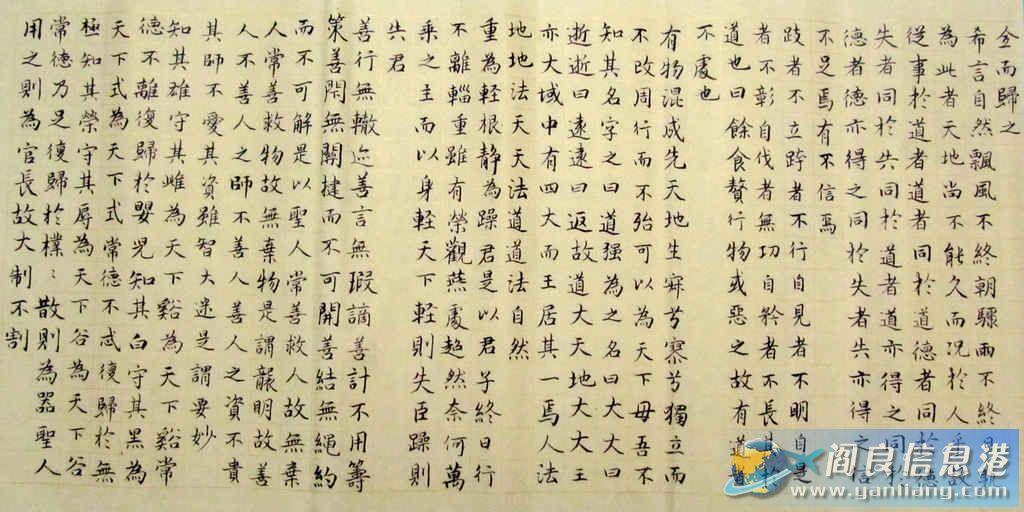 全而歸之
希言自然飄風不終朝驟雨不終日孰
為此者天地尚不能久而況於人乎故
從事於道者道者同於道德者同於德
失者同於失同於道者道亦得之同於
德者德亦得之同於失者失亦得之信
不足焉有不信焉
跂者不立跨者不行自見者不明自是
者不彰自伐者無功自矜者不長其於
道也曰餘食贅行物或惡之故有道者
不處也
有物混成先天地生寂兮寥兮獨立而
不改周行而不殆可以為天下母吾不
知其名字之曰道强為之名曰大大曰
逝逝曰遠遠曰返故道大天大地大王
亦大域中有四大而王居其一焉人法
地地法天天法道道法自然
重為輕根静為躁君是以君子終日行
不離輜重雖有榮觀燕處超然奈何萬
乘之主而以身輕天下輕則失臣躁則
失君
善行無轍迹善言無瑕謫善計不用籌
策善閉無關揵而不可開善結無繩約
而不可解是以聖人常善救人故無棄
人常善救物故無棄物是謂襲明故善
人不善人之師不善人善人之資不貴
其師不愛其資雖智大迷是謂要妙
知其雄守其雌為天下谿為天下谿常
德不離復歸於嬰兒知其白守其黑為
天下式為天下式常德不忒復歸於無
極知其榮守其辱為天下谷為天下谷
常德乃足復歸於樸〻散則為器聖人
用之則為官長故大制不割
阎良信息港
www.yanliang.com